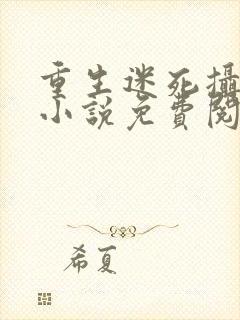 重生迷死攝
小說免費閱
希夏